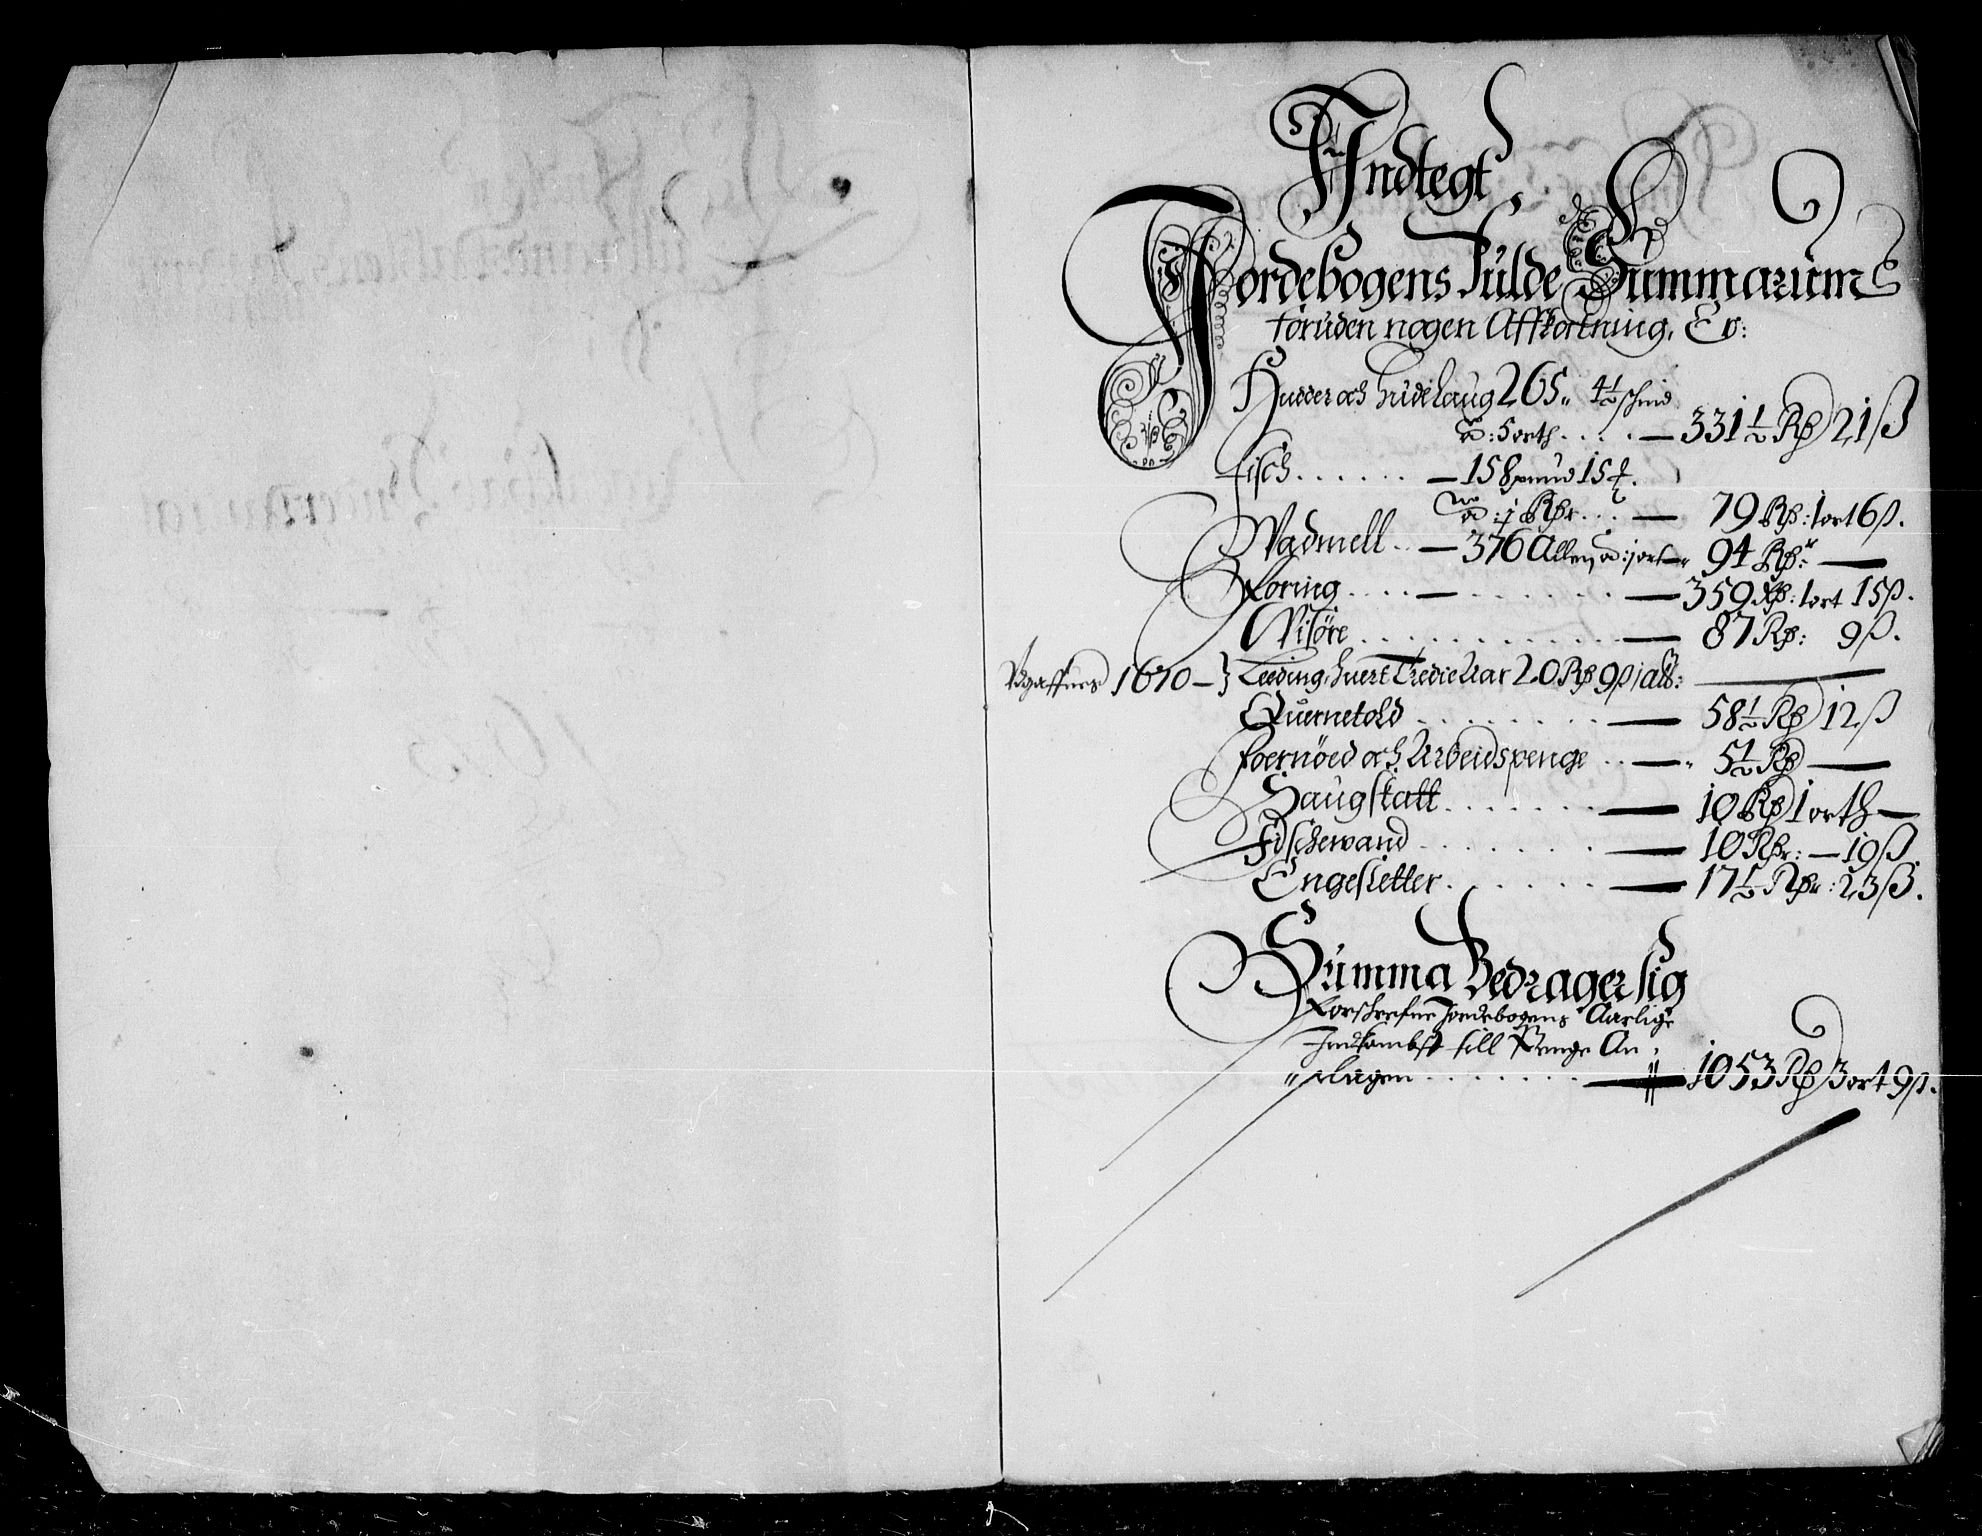 Indtegt
Jordebogens fulde Summarum
foruden nogen Affkortning, Er:
Huder och hudelaug 265„ 4½ schind
a: 5 orth . . . . — 331½ Rd 21 ß
Fisch . . . . . . — 158 pund 15
a: j Rdr . . . — 79 Rd: 1 ort 6 ß.
Wadmell . . — 376 Allen a: j ort — 94 Rdr: —
Foring . . . . — . . . . . . . — 359 Rd: 1 ort 15 ß.
Visöre . . . . . . . . . . . . — 87 Rd: 9 ß.
1670 — } Leeding, huert Tredie Aar 20 Rd 9 ß
Quernetold . . . . . . . . . — 58½ Rd 12 ß
Foernöed och Arbeidspenge . . — 5½ Rd —
Saugskatt . . . . . . . — 10 Rd 1 orth —
Fischewand . . . . . . . — 10 Rdr: — 19 ß.
Engesletter . . . . . . — 17½ Rdr: 23 ß.
Summa Bedrager sig
Forschrefne Jordebogens Aarlige
Indkombst till Penge An
slagen . . . . . . . — 1053 Rd 3 ort 9 ß.